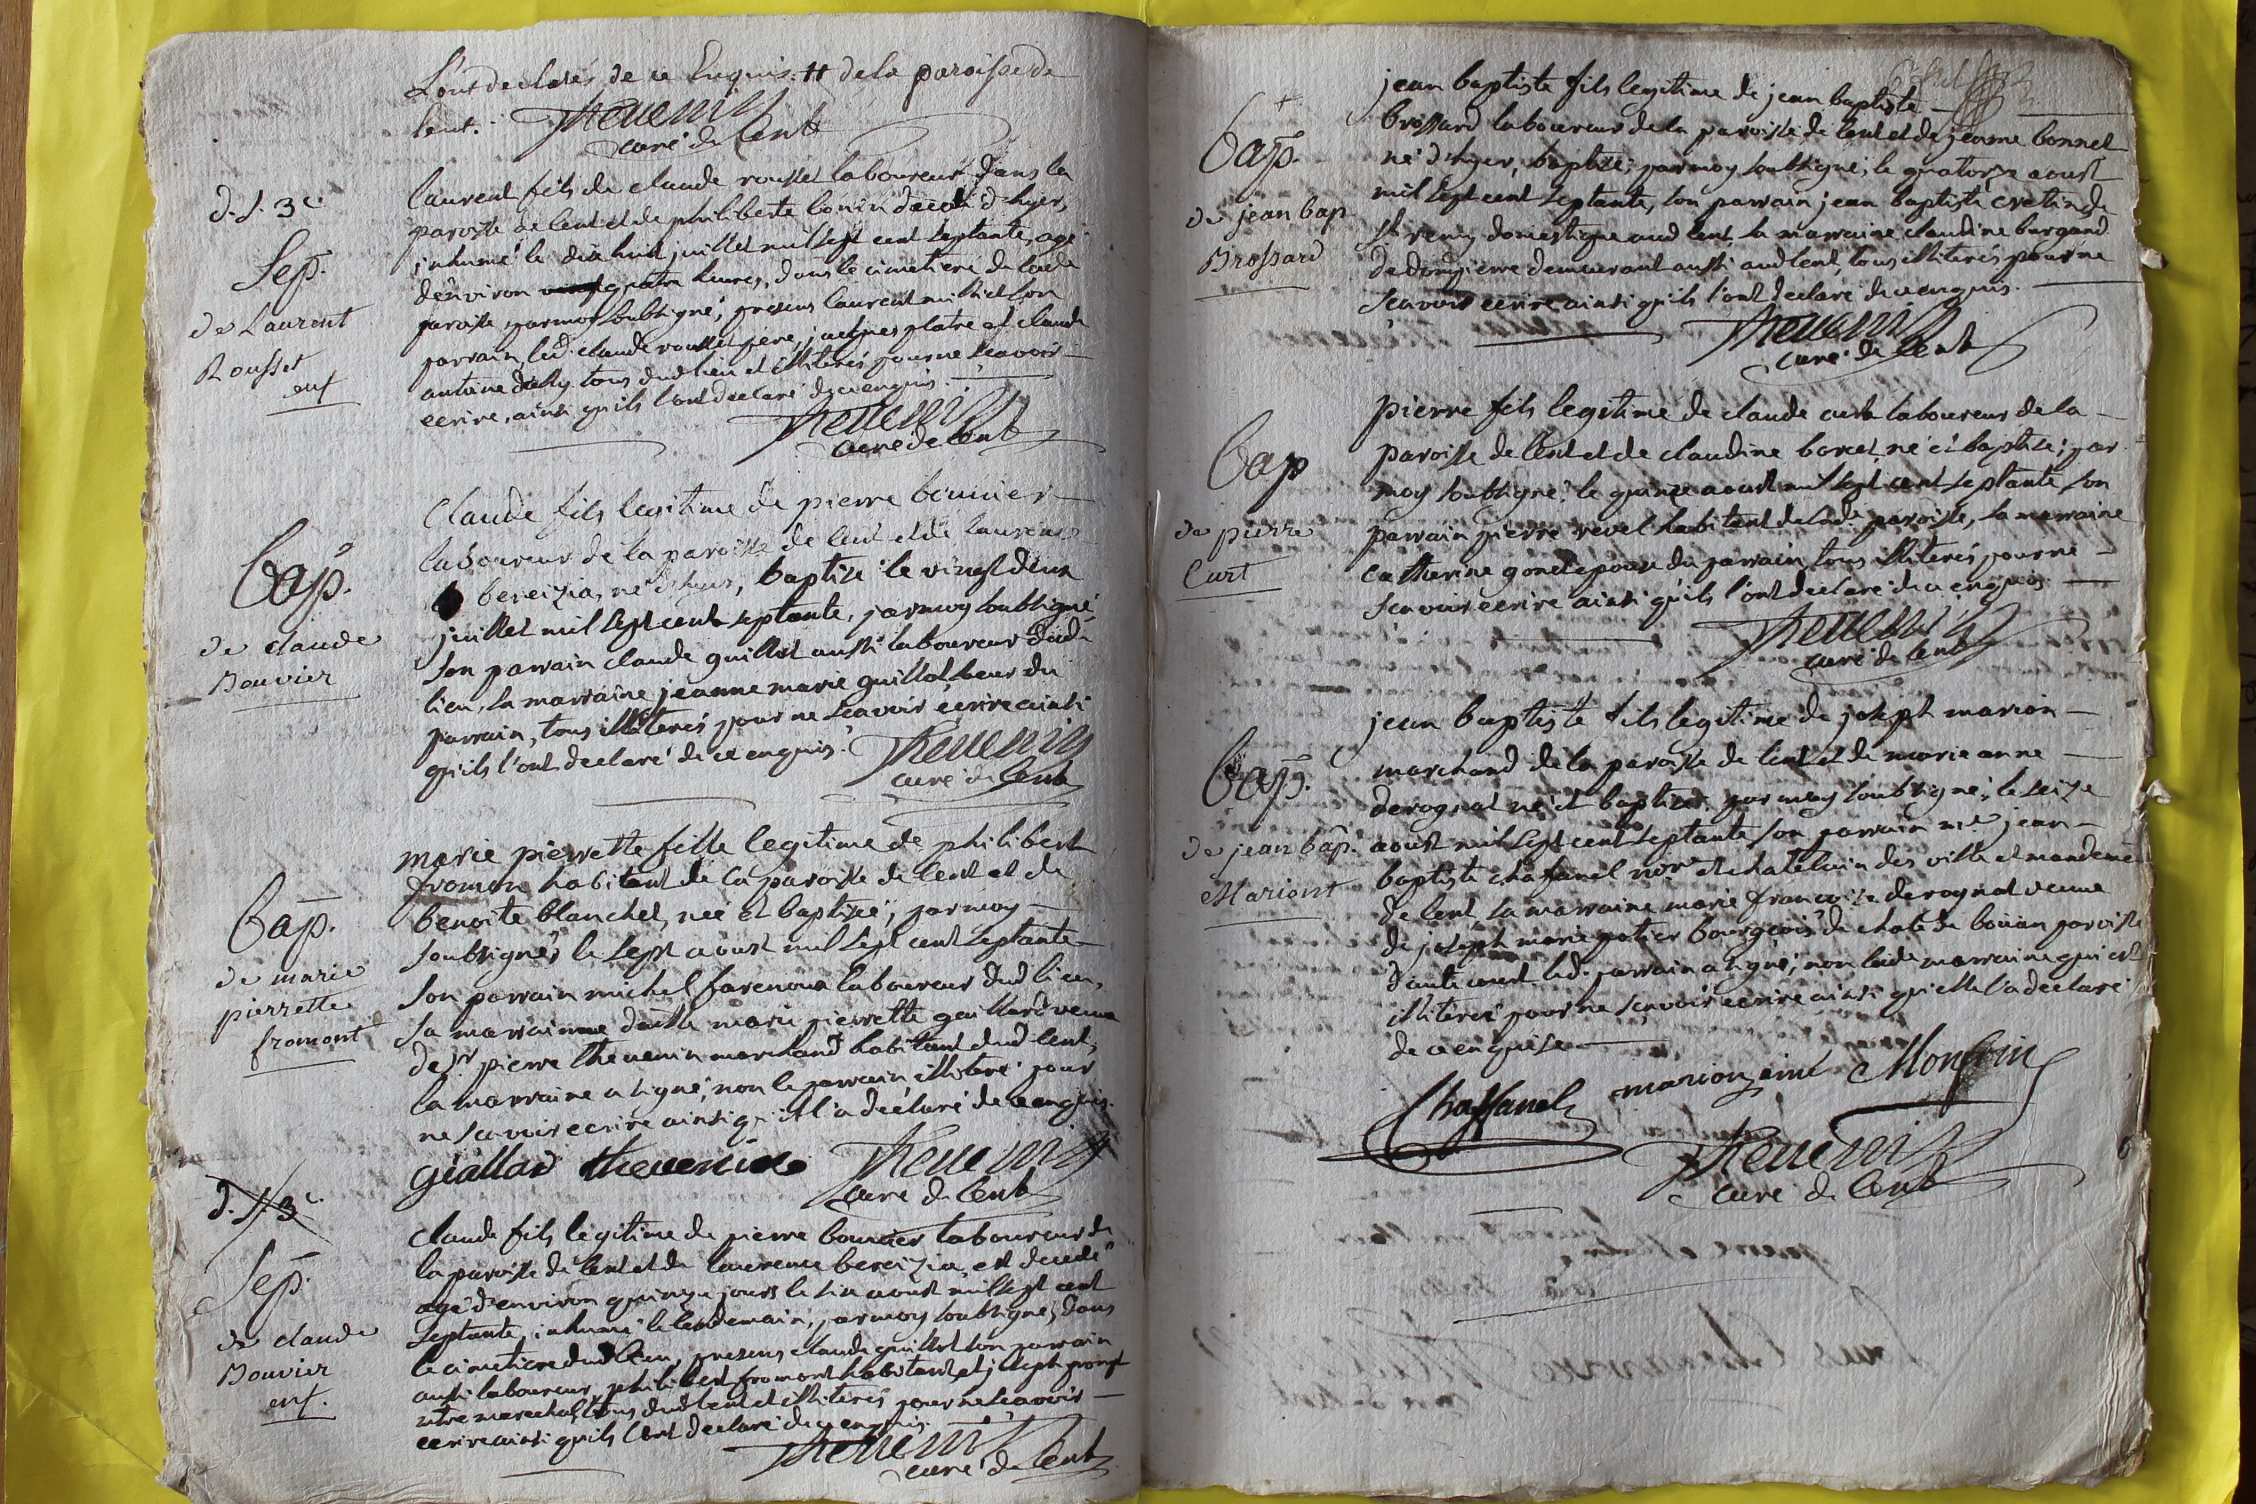 L'ont declarés de ce Enquis. # de la paroisse de
Lent. Thevenin
curé de Lent
d. s. 3e
Sep.
de Laurent
Rousset
enf
laurent fils de claude rousset laboureur dans la
paroisse de lent et de philiberte bonin décédé d'hyer,
inhumé le dix huit juillet mil sept cent septante, agé
d'environ quatre heures, dans le cimetiere de lade
paroisse, par moy soubsigné, presens laurent millet son
parrain, led. claude rousset pere, jacques platre et claude
antoine tous dud lieu et illiterés pour ne scavoir
ecrire, ainsi qu'ils l'ont declaré de ce enquis.
Thevenin
curé de Lent
Bap.
de claude
Bouvier
Claude fils legitime de pierre bouvier
laboureur de la paroisse de lent et de laurence
bereizia, né d'hyer, baptisé le vingt deux
juillet mil sept cent septante, par moy soubsigné,
son parrain claude guillot aussi laboureur dud.
lieu, sa marraine jeanne marie guillot soeur du
parrain, tous illiterés pour ne scavoir ecrire ainsi
qu'ils l'ont declaré de ce enquis.
Thevenin
curé de Lent
Bap.
de marie
pierrette
fromont
marie pierrette fille legitime de philibert
fromon habitant de la paroisse de lent et de
benoite blanchet, née et baptisée, par moy
soubsigné, le sept aoust mil sept cent septante
son parrain michel farenoux laboureur dud lieu,
sa marraine marie pierrette gaillard veuve
de sr pierre thevenin marchand habitant dud lent,
la marraine a signé, non le parrain illiteré pour
ne scavoir ecrire ainsi qu'il l'a déclaré de ce enquis.
giallar thevenin
Thevenin
curé de Lent
d. s. 3e
Sep.
de claude
Bouvier
enf.
claude fils legitime de pierre bouvier laboureur de
la paroisse de lent et de laurence bereizia, est decedé
agé d'environ quinze jours le six aoust mil sept cent
septante, inhumé le lendemain, par moy soubsigné, dans
le cimetiere dud lieu, presens claude guillot son parrain
aussi laboureur, philibert fromont habitant et joseph
marechal tous dud lent et illiterés pour ne scavoir
ecrire ainsi qu'ils l'ont declaré de ce enquis.
Thevenin
curé de Lent
Bap.
de jean bap
Brossard
jean baptiste fils legitime de jean baptiste
brossard laboureur de la paroisse de lent et de jeanne bonnet
né d'hyer, baptisé, par moy soubsigné, le quatorze aoust
mil sept cent septante, son parrain jean baptiste cretin de
st remy domestique aud lent, sa marraine claudine burgand
de dompierre demeurant aussi aud lent, tous illiterés pour ne
scavoir ecrire ainsi qu'ils l'ont declaré de ce enquis.
Thevenin
curé de Lent
Bap
de pierre
Curt
pierre fils legitime de claude curt laboureur de la
paroisse de lent et de claudine borcet, né et baptisé, par
moy soubsigné, le quinze aoust mil sept cent septante son
parrain pierre revel habitant de lade paroisse, sa marraine
catherine gonet epouse du parrain, tous illiterés pour ne
scavoir ecrire ainsi qu'ils l'ont declaré de ce enquis
Thevenin
curé de Lent
Bap.
de jean bap.
Mariont
jean baptiste fils legitime de joseph marion
marchand de la paroisse de lent et de marie anne
derognat né et baptisé par moy soubsigné, le seize
aoust mil sept cent septante son parrain me jean
baptiste chafanel nore et chatelain des ville et mandement
de lent, sa marraine marie francoise derognat veuve
de joseph marie potier bourgeois de de boüan paroisse
led. parrain a signé, non lade marraine qui est
illiterée pour ne scavoir ecrire ainsi qu'elle l'a declaré
de ce enquise
Chaffanel marion ainé Monfrin
Thevenin
curé de Lent